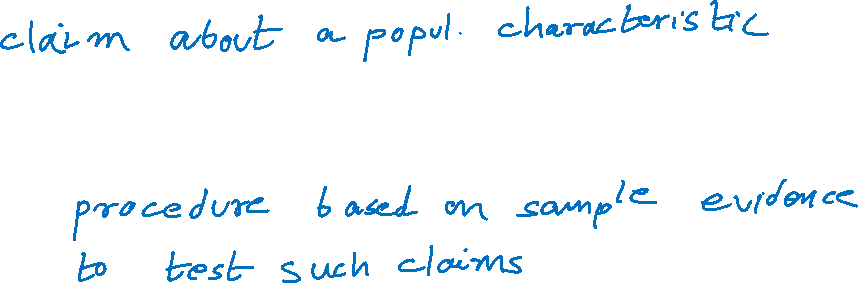 claim about a popul. characteristic
procedure based on sample evidence
to test such claims